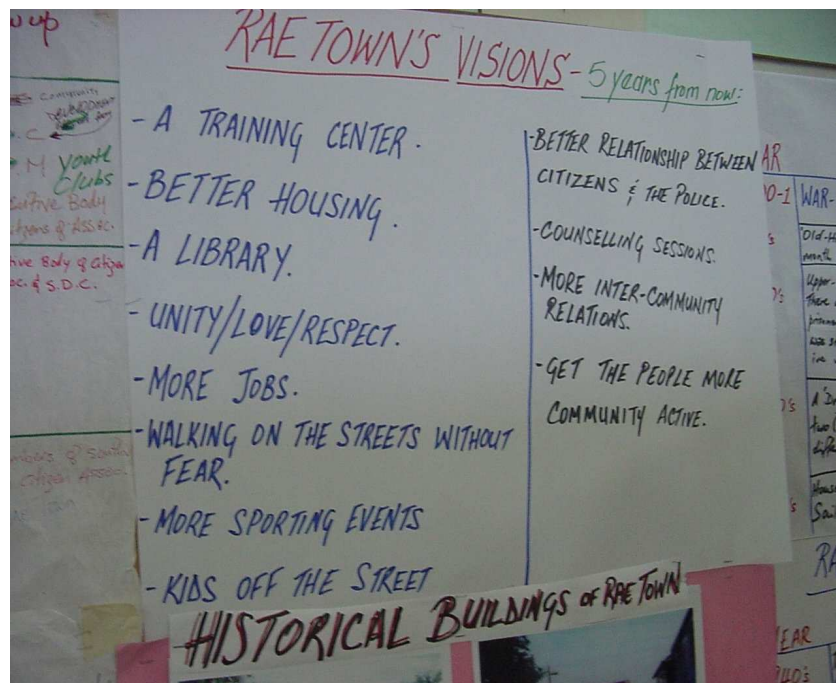 RAE TOWN'S VISIONS - 5 years from now:
- A TRAINING CENTER.
- BETTER HOUSING.
- A LIBRARY.
- UNITY/LOVE/RESPECT.
- MORE JOBS.
- WALKING ON THE STREETS WITHOUT
FEAR.
- MORE SPORTING EVENTS
- KIDS OFF THE STREET
- BETTER RELATIONSHIP BETWEEN
CITIZENS & THE POLICE.
- COUNSELLING SESSIONS.
- MORE INTER-COMMUNITY
RELATIONS.
- GET THE PEOPLE MORE
COMMUNITY ACTIVE.
HISTORICAL BUILDINGS OF RAE TOWN
up
Community
C
M Youth
Clubs
Body
Body of Citizen
& S.D.C.
AR
WAR-
month
Upper-
two
EAR